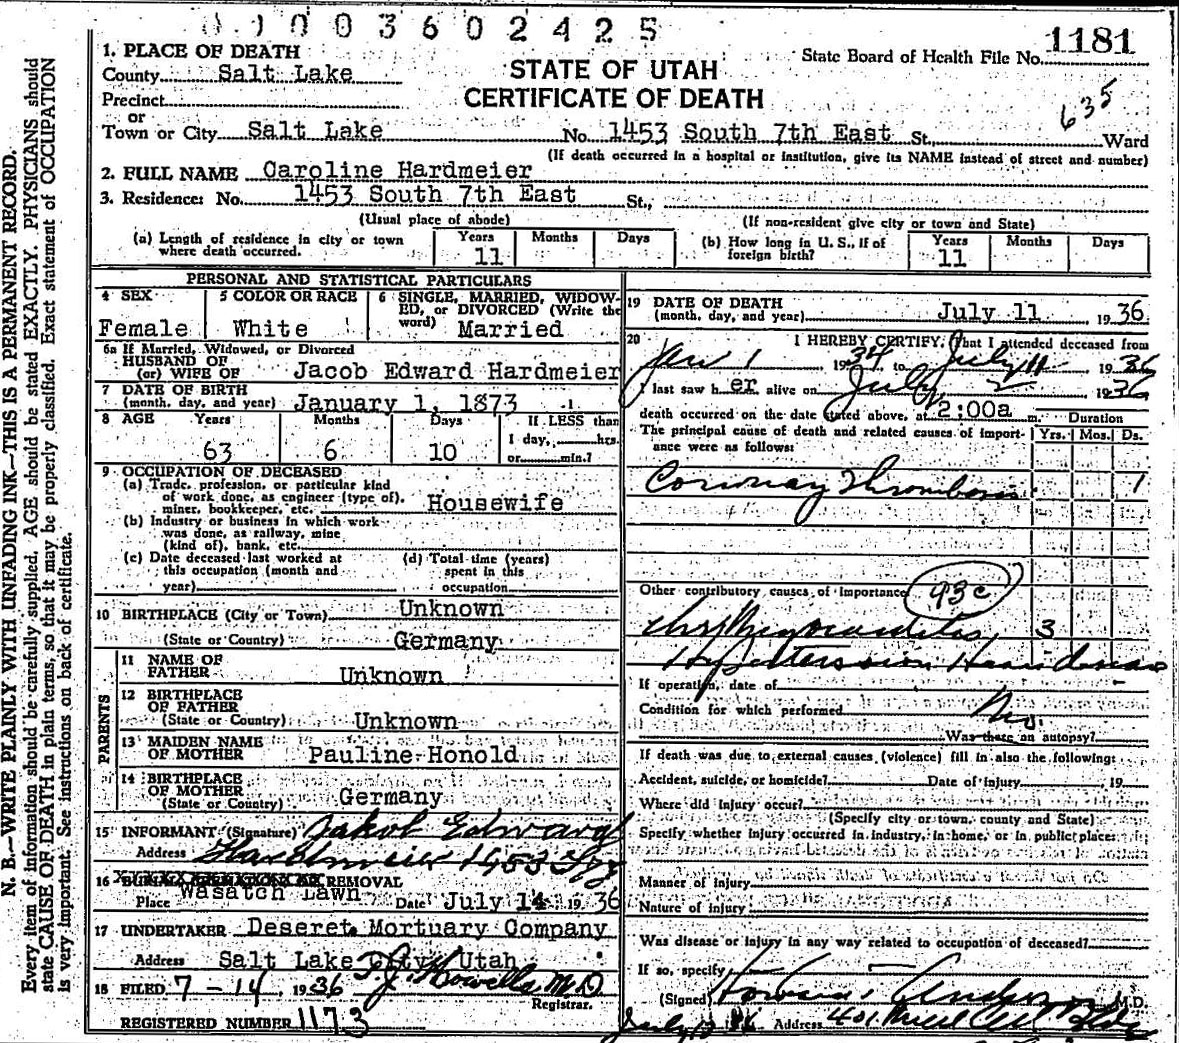 0 1 0 0 3 6 0 2 4 2 5
1181
State Board of Health File No.
1. PLACE OF DEATH
County Salt Lake
STATE OF UTAH
Precinct
CERTIFICATE OF DEATH
635
or
Town or City Salt Lake No. 1453 South 7th East St., Ward
(If death occurred in a hospital or institution, give its NAME instead of street and number)
2. FULL NAME Caroline Hardmeier
3. Residence: No. 1453 South 7th East St.,
(Usual place of abode) (If non-resident give city or town and State)
(a) Length of residence in city or town where death occurred. Years 11 Months Days
(b) How long in U. S., if of foreign birth? Years 11 Months Days
PERSONAL AND STATISTICAL PARTICULARS
4 SEX Female
5 COLOR OR RACE White
6 SINGLE, MARRIED, WIDOWED, or DIVORCED (Write the word) Married
6a If Married, Widowed, or Divorced
HUSBAND OF
(or) WIFE OF Jacob Edward Hardmeier
7 DATE OF BIRTH
(month, day, and year) January 1, 1873
8 AGE Years 63 Months 6 Days 10 If LESS than 1 day, hrs. or min.?
9 OCCUPATION OF DECEASED
(a) Trade, profession, or particular kind
of work done, as engineer (type of),
miner, bookkeeper, etc. Housewife
(b) Industry or business in which work
was done, as railway, mine
(kind of), bank, etc.
(c) Date deceased last worked at
this occupation (month and
year)
(d) Total time (years)
spent in this
occupation
10 BIRTHPLACE (City or Town) Unknown
(State or Country) Germany
PARENTS
11 NAME OF
FATHER Unknown
12 BIRTHPLACE
OF FATHER
(State or Country) Unknown
13 MAIDEN NAME
OF MOTHER Pauline Honold
14 BIRTHPLACE
OF MOTHER
(State or Country) Germany
15 INFORMANT (Signature) Jakob Edward
Address Hardmeier 1453 So 7 E
16 REMOVAL
Place Wasatch Lawn Date July 14 1936
17 UNDERTAKER Deseret Mortuary Company
Address Salt Lake City Utah
18 FILED 7-14, 1936 T. J. Howells M.D.
Registrar.
REGISTERED NUMBER 1173
19 DATE OF DEATH
(month, day, and year) July 11, 1936
20 I HEREBY CERTIFY, That I attended deceased from
Jan 1 1934 to July 11 1936
I last saw her alive on July 1936
death occurred on the date stated above, at 2:00a m.
Duration
The principal cause of death and related causes of importance were as follows: Yrs. Mos. Ds.
Coronary Thrombosis 1
Other contributory causes of importance
93c
Chr Myocarditis, 3
Hypertension Heart disease
If operation, date of
Condition for which performed
No.
Was there an autopsy?
If death was due to external causes (violence) fill in also the following:
Accident, suicide, or homicide? Date of injury , 19
Where did injury occur?
(Specify city or town, county and State)
Specify whether injury occurred in industry, in home, or in public place:
Manner of injury
Nature of injury
Was disease or injury in any way related to occupation of deceased?
If so, specify
(Signed) Howard T Anderson M.D.
July 13 36 Address 401 Bldg
N. B.—WRITE PLAINLY WITH UNFADING INK—THIS IS A PERMANENT RECORD.
Every item of information should be carefully supplied. AGE should be stated EXACTLY. PHYSICIANS should
state CAUSE OF DEATH in plain terms, so that it may be properly classified. Exact statement of OCCUPATION
is very important. See instructions on back of certificate.